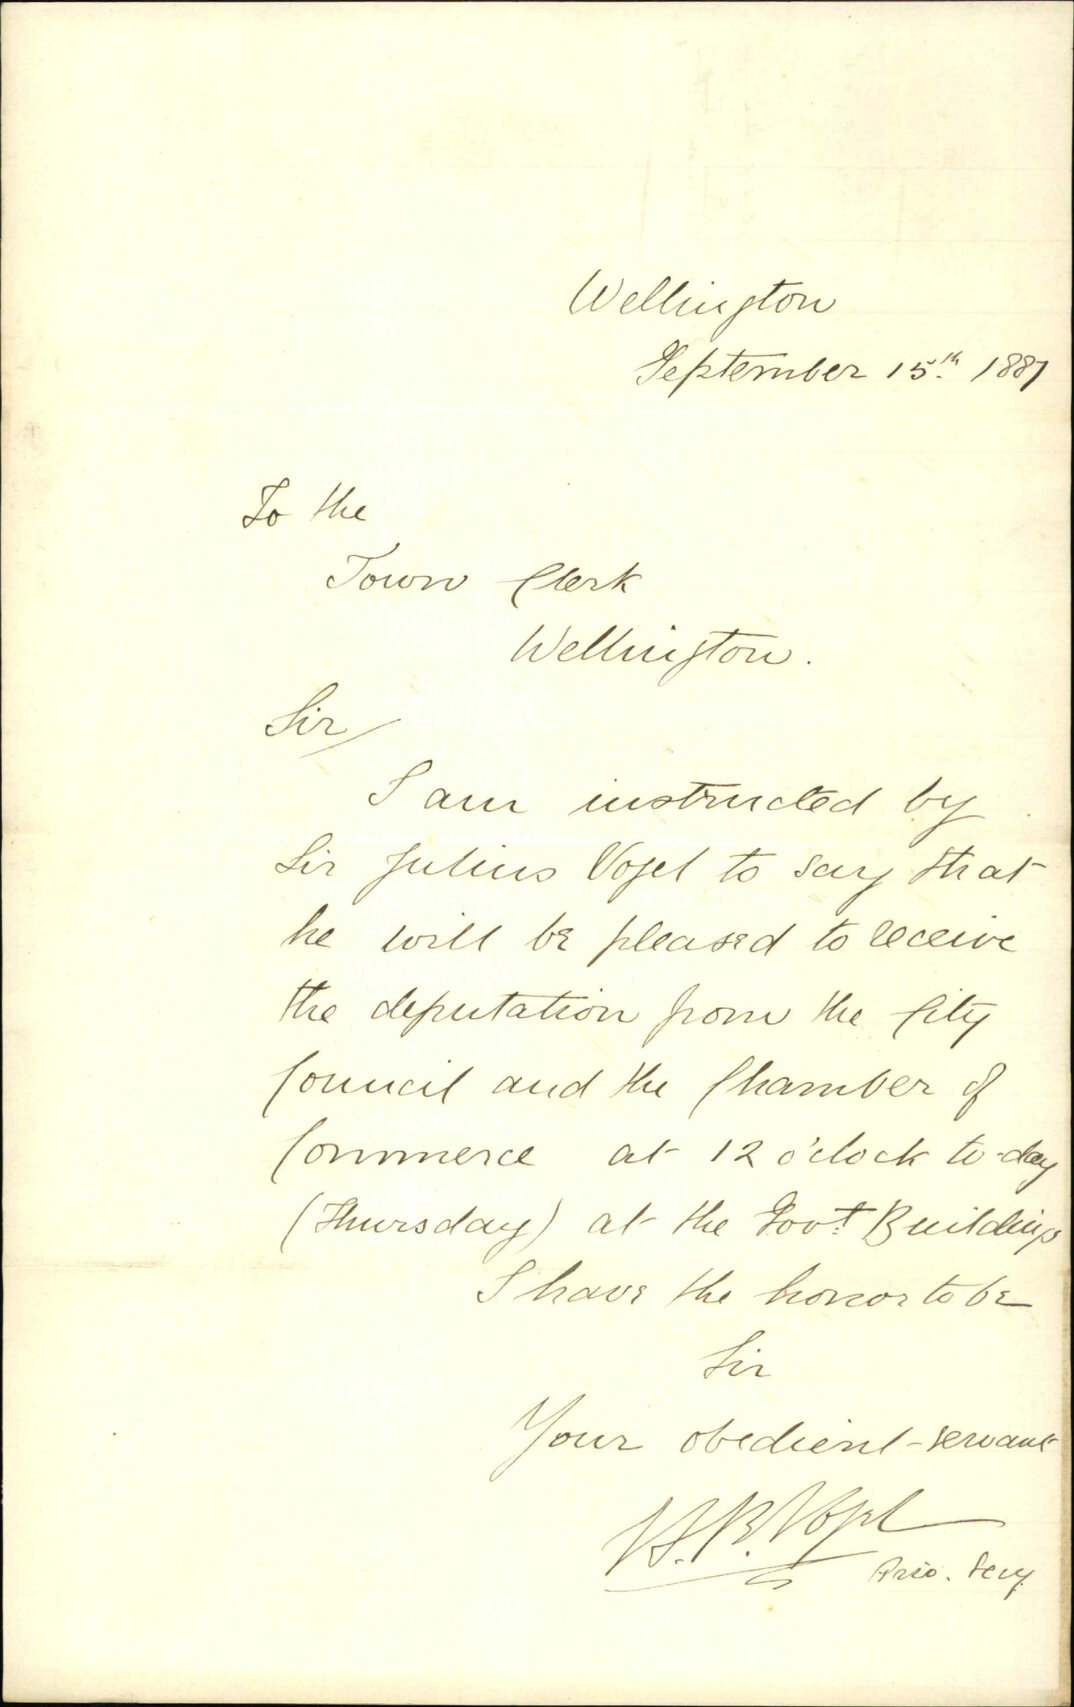 Wellington
September 15th 1887
To the
Town Clerk
Wellington.
Sir/
I am instructed by
Sir Julius Vogel to say that
he will be pleased to receive
the deputation from the City
Council and the Chamber of
Commerce at 12 o'clock to-day
(Thursday) at the Govt Buildings
I have the honor to be
Sir
Your obedient servant
H. B. Vogel
Priv. Secy.